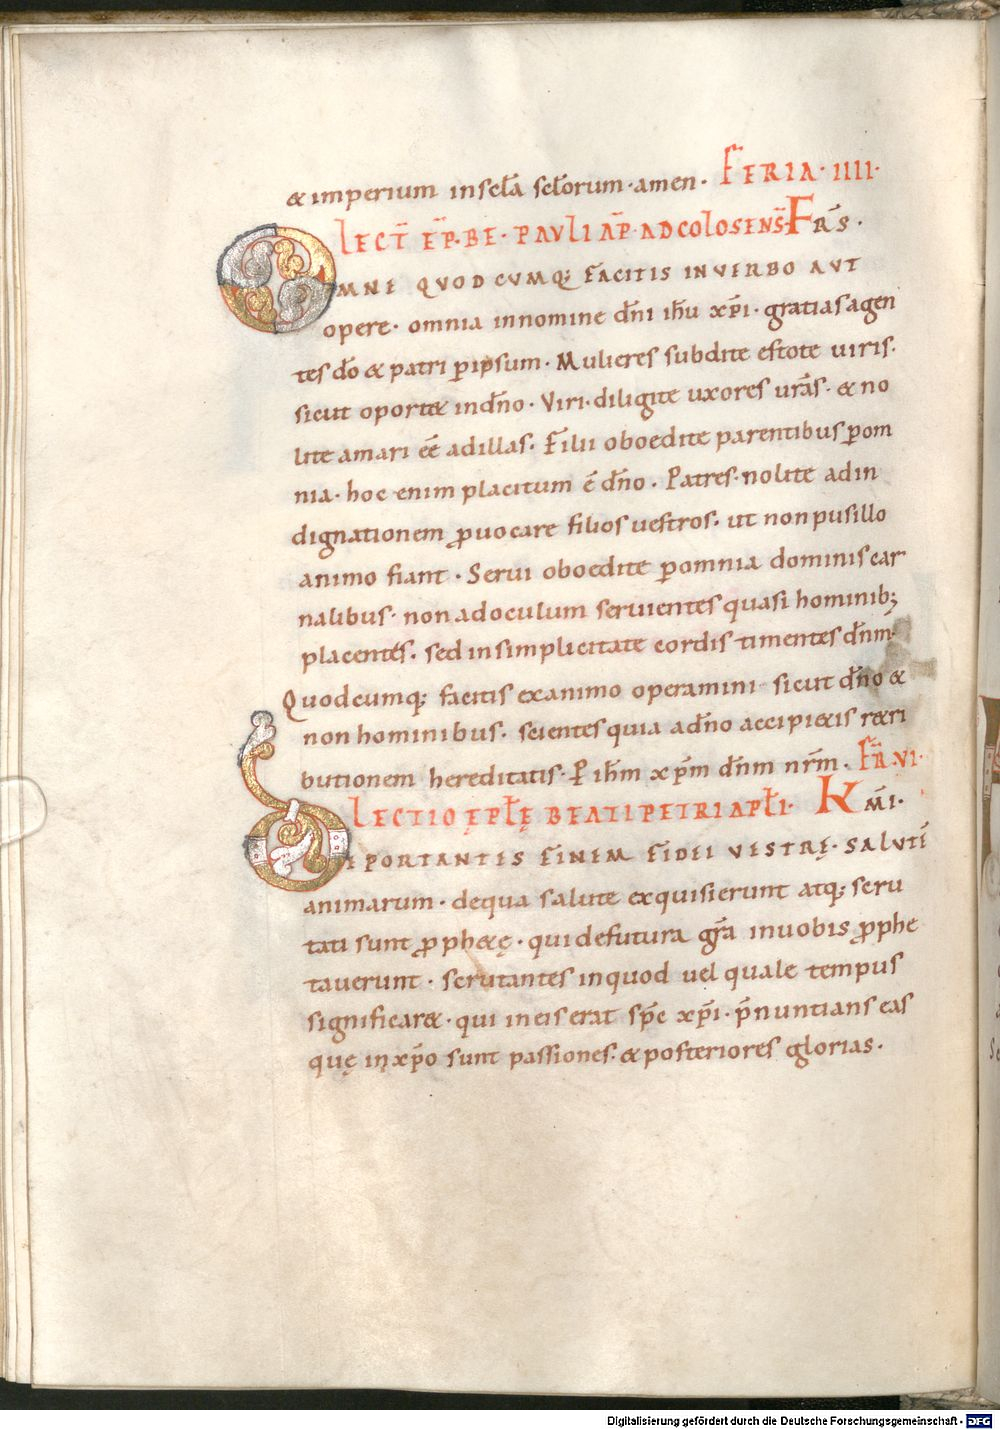 & imperium in sectła sectłorum · amen · FERIA · IIII ·
LECT̄ EP̄ · BE · PAULI AP̄ · AD COLOSENS̄ · FRS̄ ·
OMNE QUODCUMQ; FACITIS IN VERBO AUT
opere · omnia in nomine dn̄i ih̄u xp̄i · gratias agen
tes dō & patri ꝑ ipsum · Mulieres subdite estote uiris ·
sicut oport& in dn̄o · Viri · diligite uxores ur̄as · & no
lite amari eē ad illas · Filii oboedite parentibus ꝑ om
nia · hoc enim placitum ē dn̄o · Patres · nolite ad in
dignationem ꝓuocare filios uestros · ut non pusillo
animo fiant · Serui oboedite ꝑ omnia dominis car
nalibus · non ad oculum seruientes quasi hominib;
placentes · sed in simplicitate cordis timentes dn̄m ·
Quodcumq; facitis ex animo operamini sicut dn̄o &
non hominibus · scientes quia a dn̄o accipi&is r&ri
butionem hereditatis · P ih̄m xp̄m dn̄m nr̄m · FR̄ · VI ·
LECTIO EPŁĘ BEATI PETRI APŁI · KM̄I ·
REPORTANTES FINEM FIDEI VESTRĘ · SALUTĒ
animarum · de qua salute exquisierunt atq; scru
tati sunt ꝓph&ę · qui de futura gr̄a in uobis ꝓphe
tauerunt · scrutantes in quod uel quale tempus
significar& · qui in eis erat sp̄c xp̄i · p̄nuntians eas
quę in xp̄o sunt passiones · & posteriores glorias ·
Digitalisierung gefördert durch die Deutsche Forschungsgemeinschaft - DFG